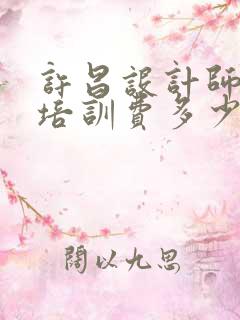 許昌設計師
培訓費多少
闊以九思